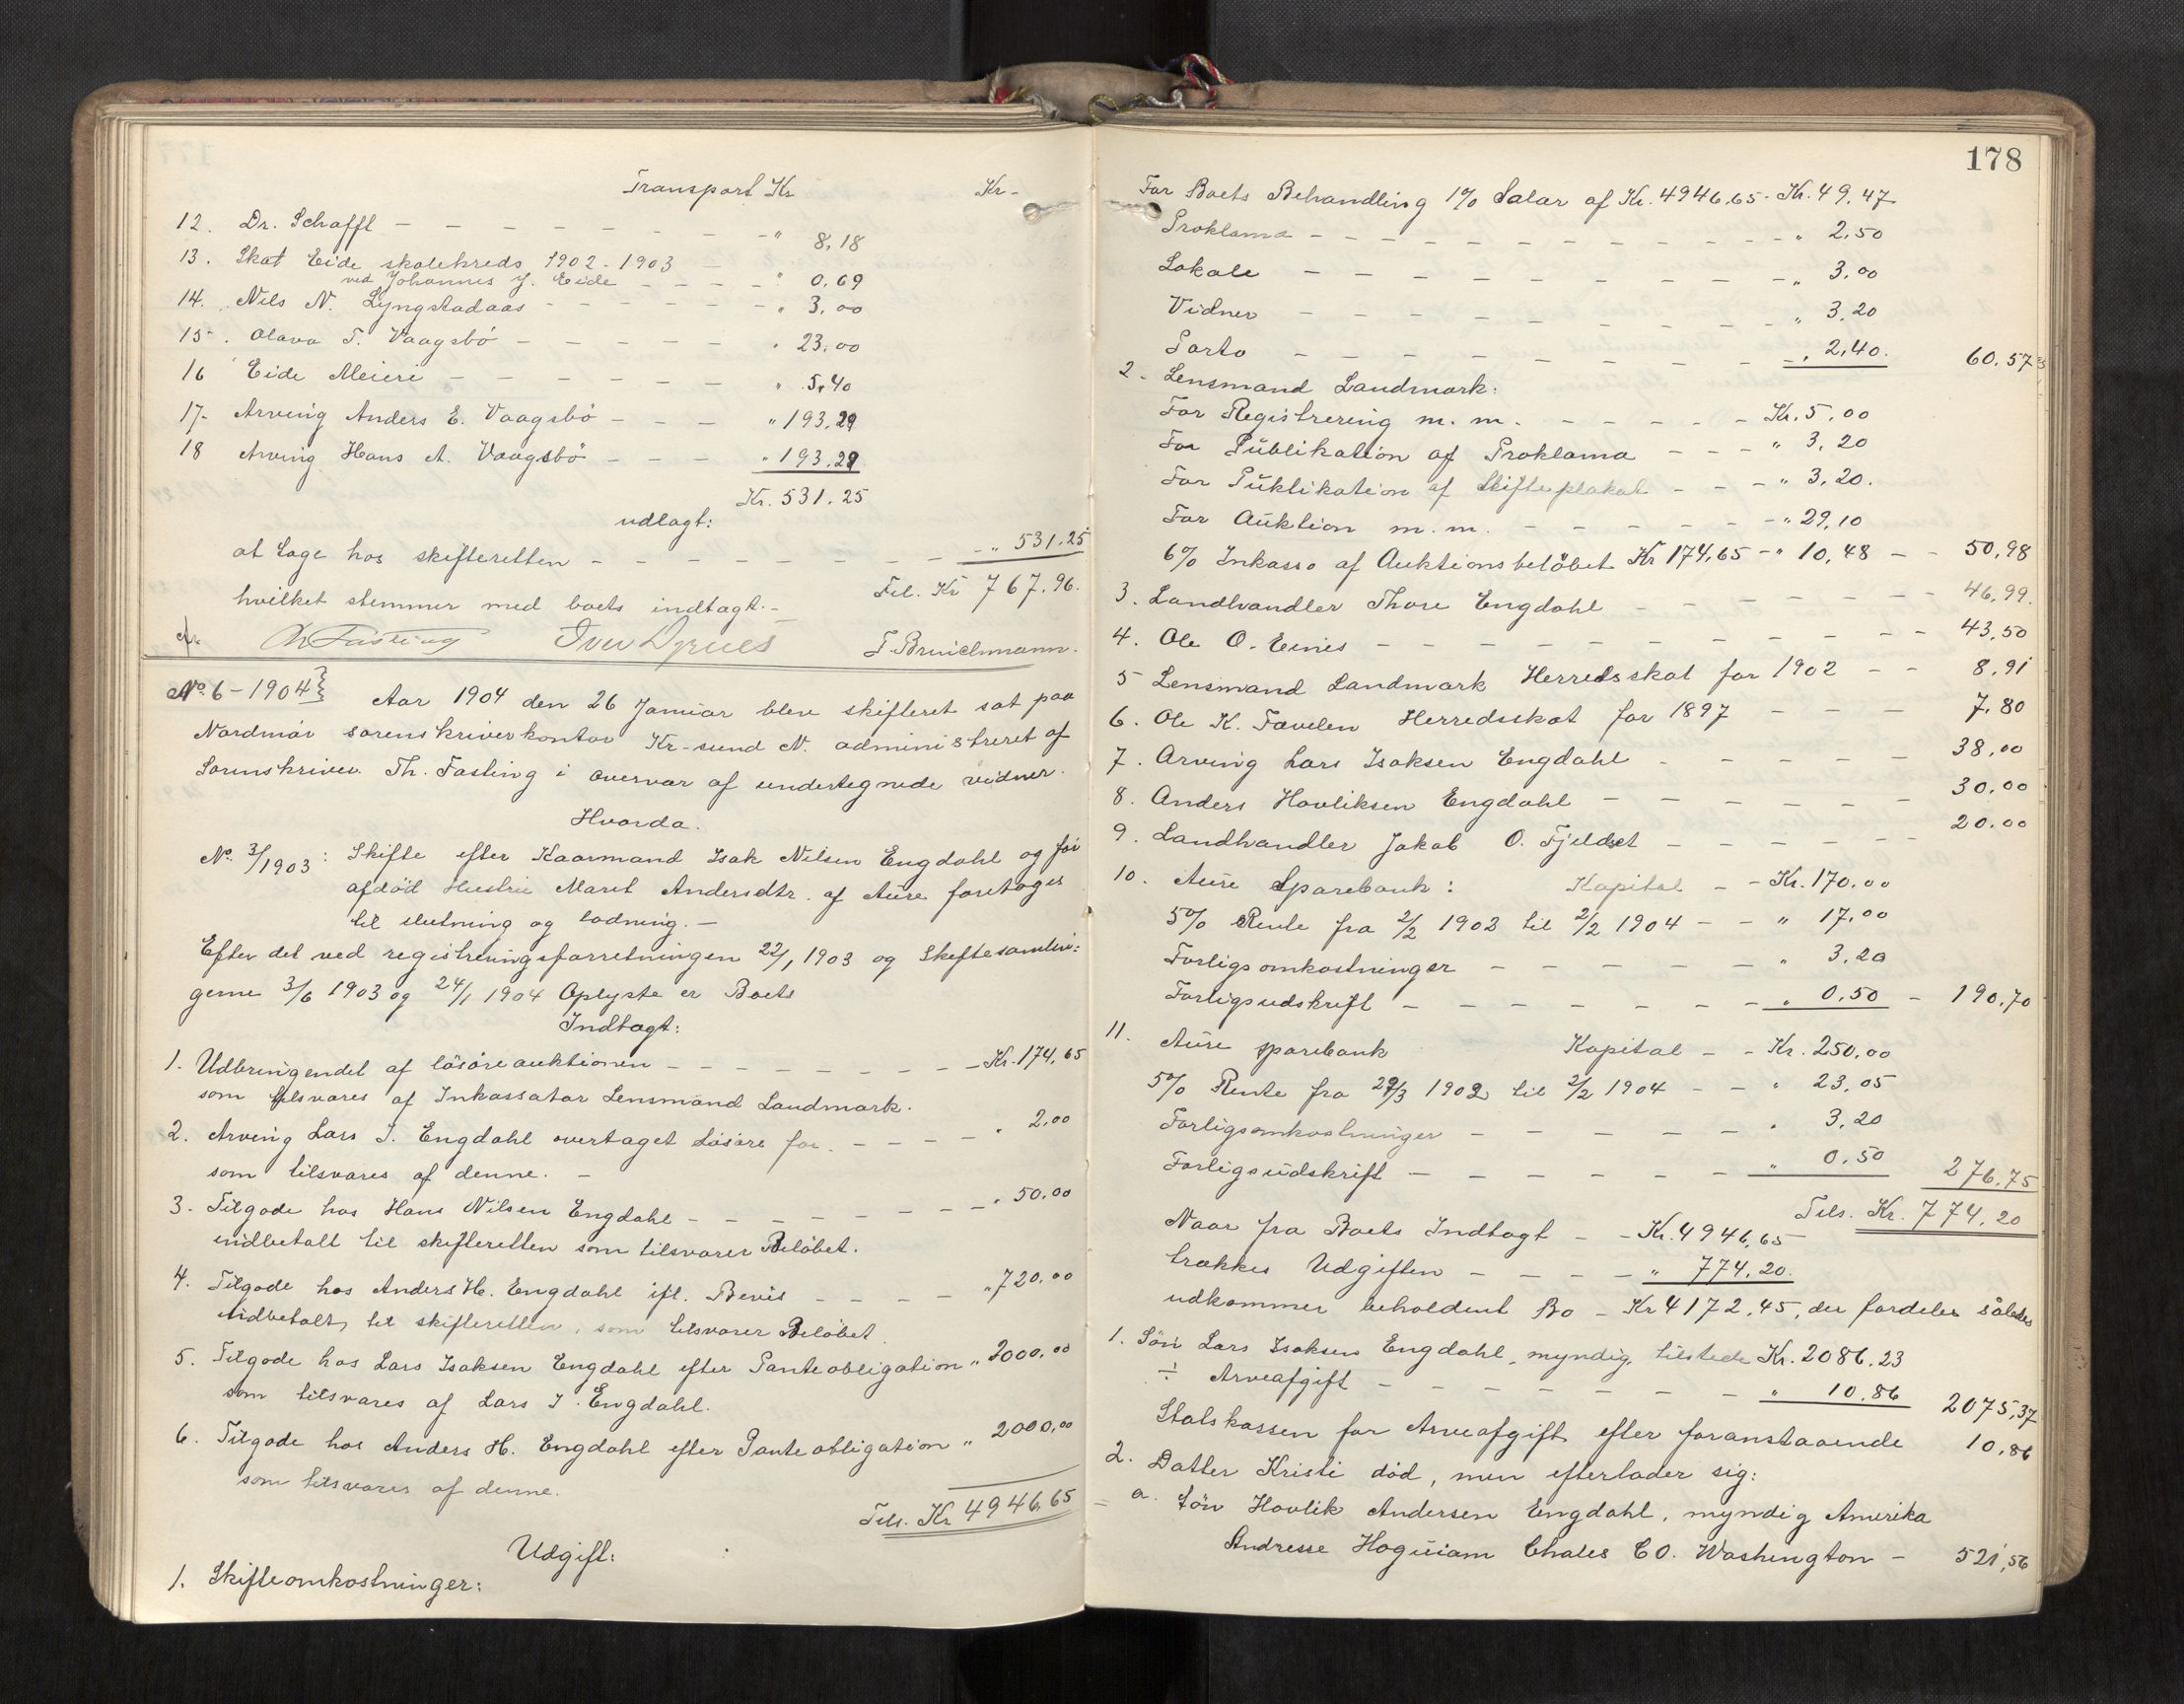 Transport Kr Kr -
12. Dr. Schaffl - - - - - - - - " 8,18
13. Skat Eide skolekreds 1902-1903 -
ved Johannes J. Eide - - - - " 0,69
14. Nils N. Lyngstadaas - - - - - - " 3,00
15. Olava T. Vaagsbö - - - - - " 23,00
16 Eide Meieri - - - - - - " 5,40
17. Arving Anders E. Vaagsbö - - - " 193,29
18 Arving Hans A. Vaagsbö - - - " 193,29
Kr. 531.25
udlagt:
at tage hos skifteretten - - - - - - - - " 531.25
Til. Kr 767.96.
hvilket stemmer med boets indtagt. -
Th Fasting Iver Dyrnes T. Bruichmann.
No. 6-1904} Aar 1904 den 26 Januar blev skifteret sat paa
Nordmör sorenskriverkontor Kr-sund N. administreret af
Sorenskriver Th. Fasting i overvær af undertegnede vidner.
Hvorda.
No. 3/1903: Skifte efter Kaarmand Isak Nilsen Engdahl og för
afdöd Hustru Maret Andersdtr. af Aure foretoges
til slutning og lodning. -
Efter det ved registreringsforretningen 22/1 1903 og Skiftesamlin=
gerne 3/6 1903 og 24/1 1904 Oplyste er Boets
Indtagt:
1. Udbringendet af lösöreauktionen - - - - - - - - Kr. 174,65
som tilsvares af Inkassator Lensmand Landmark.
2. Arving Lars I. Engdahl overtaget Lösöre for - - - - " 2,00
som tilsvares af denne. -
3. Tilgode hos Hans Nilsen Engdahl - - - - - - - - " 50,00
indbetalt til skifteretten som tilsvarer Belöbet.
4. Tilgode hos Anders H. Engdahl ifl. Bevis - - - - " 720,00
indbetalt til skifteretten, som tilsvarer Belöbet.
5. Tilgode hos Lars Isaksen Engdahl efter Panteobligation " 2000,00
som tilsvares af Lars I. Engdahl.
6. Tilgode hos Anders H. Engdahl efter Panteobligation " 2000,00
som tilsvares af denne.
Tils. Kr 4946,65
Udgift:
1. Skifteomkostninger:
178
For Boets Behandling 1% Salar af Kr. 4946,65 - Kr. 49,47
Proklama - - - - - - - - - - - - " 2,50
Lokale - - - - - - - - - " 3,00
Vidner - - - - - - - - - " 3,20
Porto - - - - - - - - - " 2,40. 60.57
2. Lensmand Landmark:
For Registrering m. m. - - - - - Kr. 5,00
For Publikation af Proklama - - - " 3,20
For Puklikation af Skifteplakat - - - " 3,20.
For Auktion m. m. - - - - - - - " 29,10
6% Inkasso af Auktionsbelöbet Kr 174,65 - " 10,48 - - 50,98
3. Landhandler Thore Engdahl - - - - - - - - 46,99.
4. Ole O. Eines - - - - - - - - - - 43,50
5 Lensmand Landmark Herredsskat for 1902 - - 8,91
6. Ole K. Tavelen Herredsskat for 1897 - - - 7,80
7. Arving Lars Isaksen Engdahl - - - - - 38,00
8. Anders Havliksen Engdahl - - - - - - 30,00
9. Landhandler Jakob O. Fjeldset - - - - - - 20.00
10. Aure Sparebank: Kapital - - Kr. 170,00
5% Rente fra 2/2 1902 til 2/2 1904 - - " 17,00
Forligsomkostninger - - - - - " 3,20
Forligsudskrift - - - - - - - " 0,50 - 190,70
11. Aure sparebank Kapital - - Kr. 250,00
5% Rente fra 29/3 1902 til 2/2 1904 - - " 23,05
Forligsomkostninger - - - - - " 3,20
Forligsudskrift - - - - - - " 0,50 276,75
Tils. Kr. 774,20
Naar fra Boets Indtagt - - Kr. 4946,65
trækkes Udgiften - - - - " 774,20.
udkommer beholdent Bo - Kr 4172,45, der fordeles således
1. Sön Lars Isaksen Engdahl, myndig, tilstede Kr. 2086.23
÷ Arveafgift - - - - - - - - " 10,86 2075,37
Statskassen for Arveafgift efter foranstaaende 10,86
2. Datter Kristi död, men efterlader sig:
= a. Sön Havlik Andersen Engdahl, myndig Amerika
Andresse Hoguiam Chales CO. Washington - 521,56